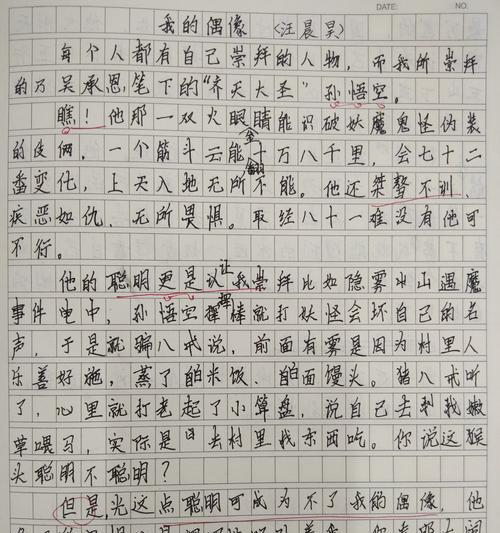 DATE: NO.
我的偶像 (汪晨昊)
每个人都有自己崇拜的人物，而我所崇拜
的乃吴承恩笔下的"齐天大圣"孙悟空。
瞧！他那一双火眼金睛能识破妖魔鬼怪伪装
的伎俩，一个筋斗云能翻十万八千里，会七十二
番变化，上天入地无所不能。他还桀骜不驯，
疾恶如仇，无所畏惧。取经八十一难没有他可
不行。
他的聪明更是让我崇拜比如隐雾山遇魔
事件中，孙悟空挥棒就打妖怪会坏自己的名
声，于是就骗八戒说，前面有雾是因为村里人
乐善好施，蒸了白米饭、白面馒头。猪八戒听
了，心里就打起了小算盘，说自己去找嫩
草喂马，实际是去村里找东西吃。你说这猴
头聪明不聪明？
但是，光这点聪明可成为不了我的偶像，他